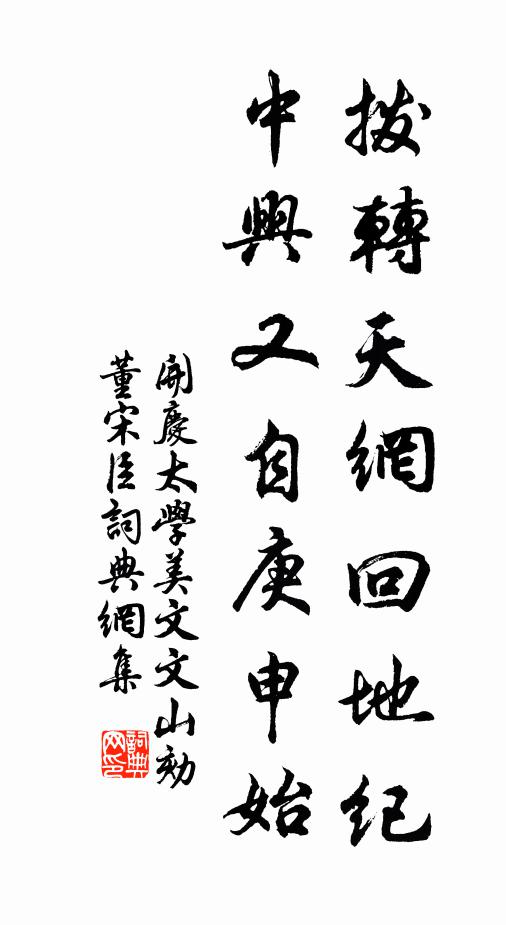 撥轉天網回地紀
中興又自庚申始
開慶太學美文文山劾
董宋臣詞典網集
詞典
网印